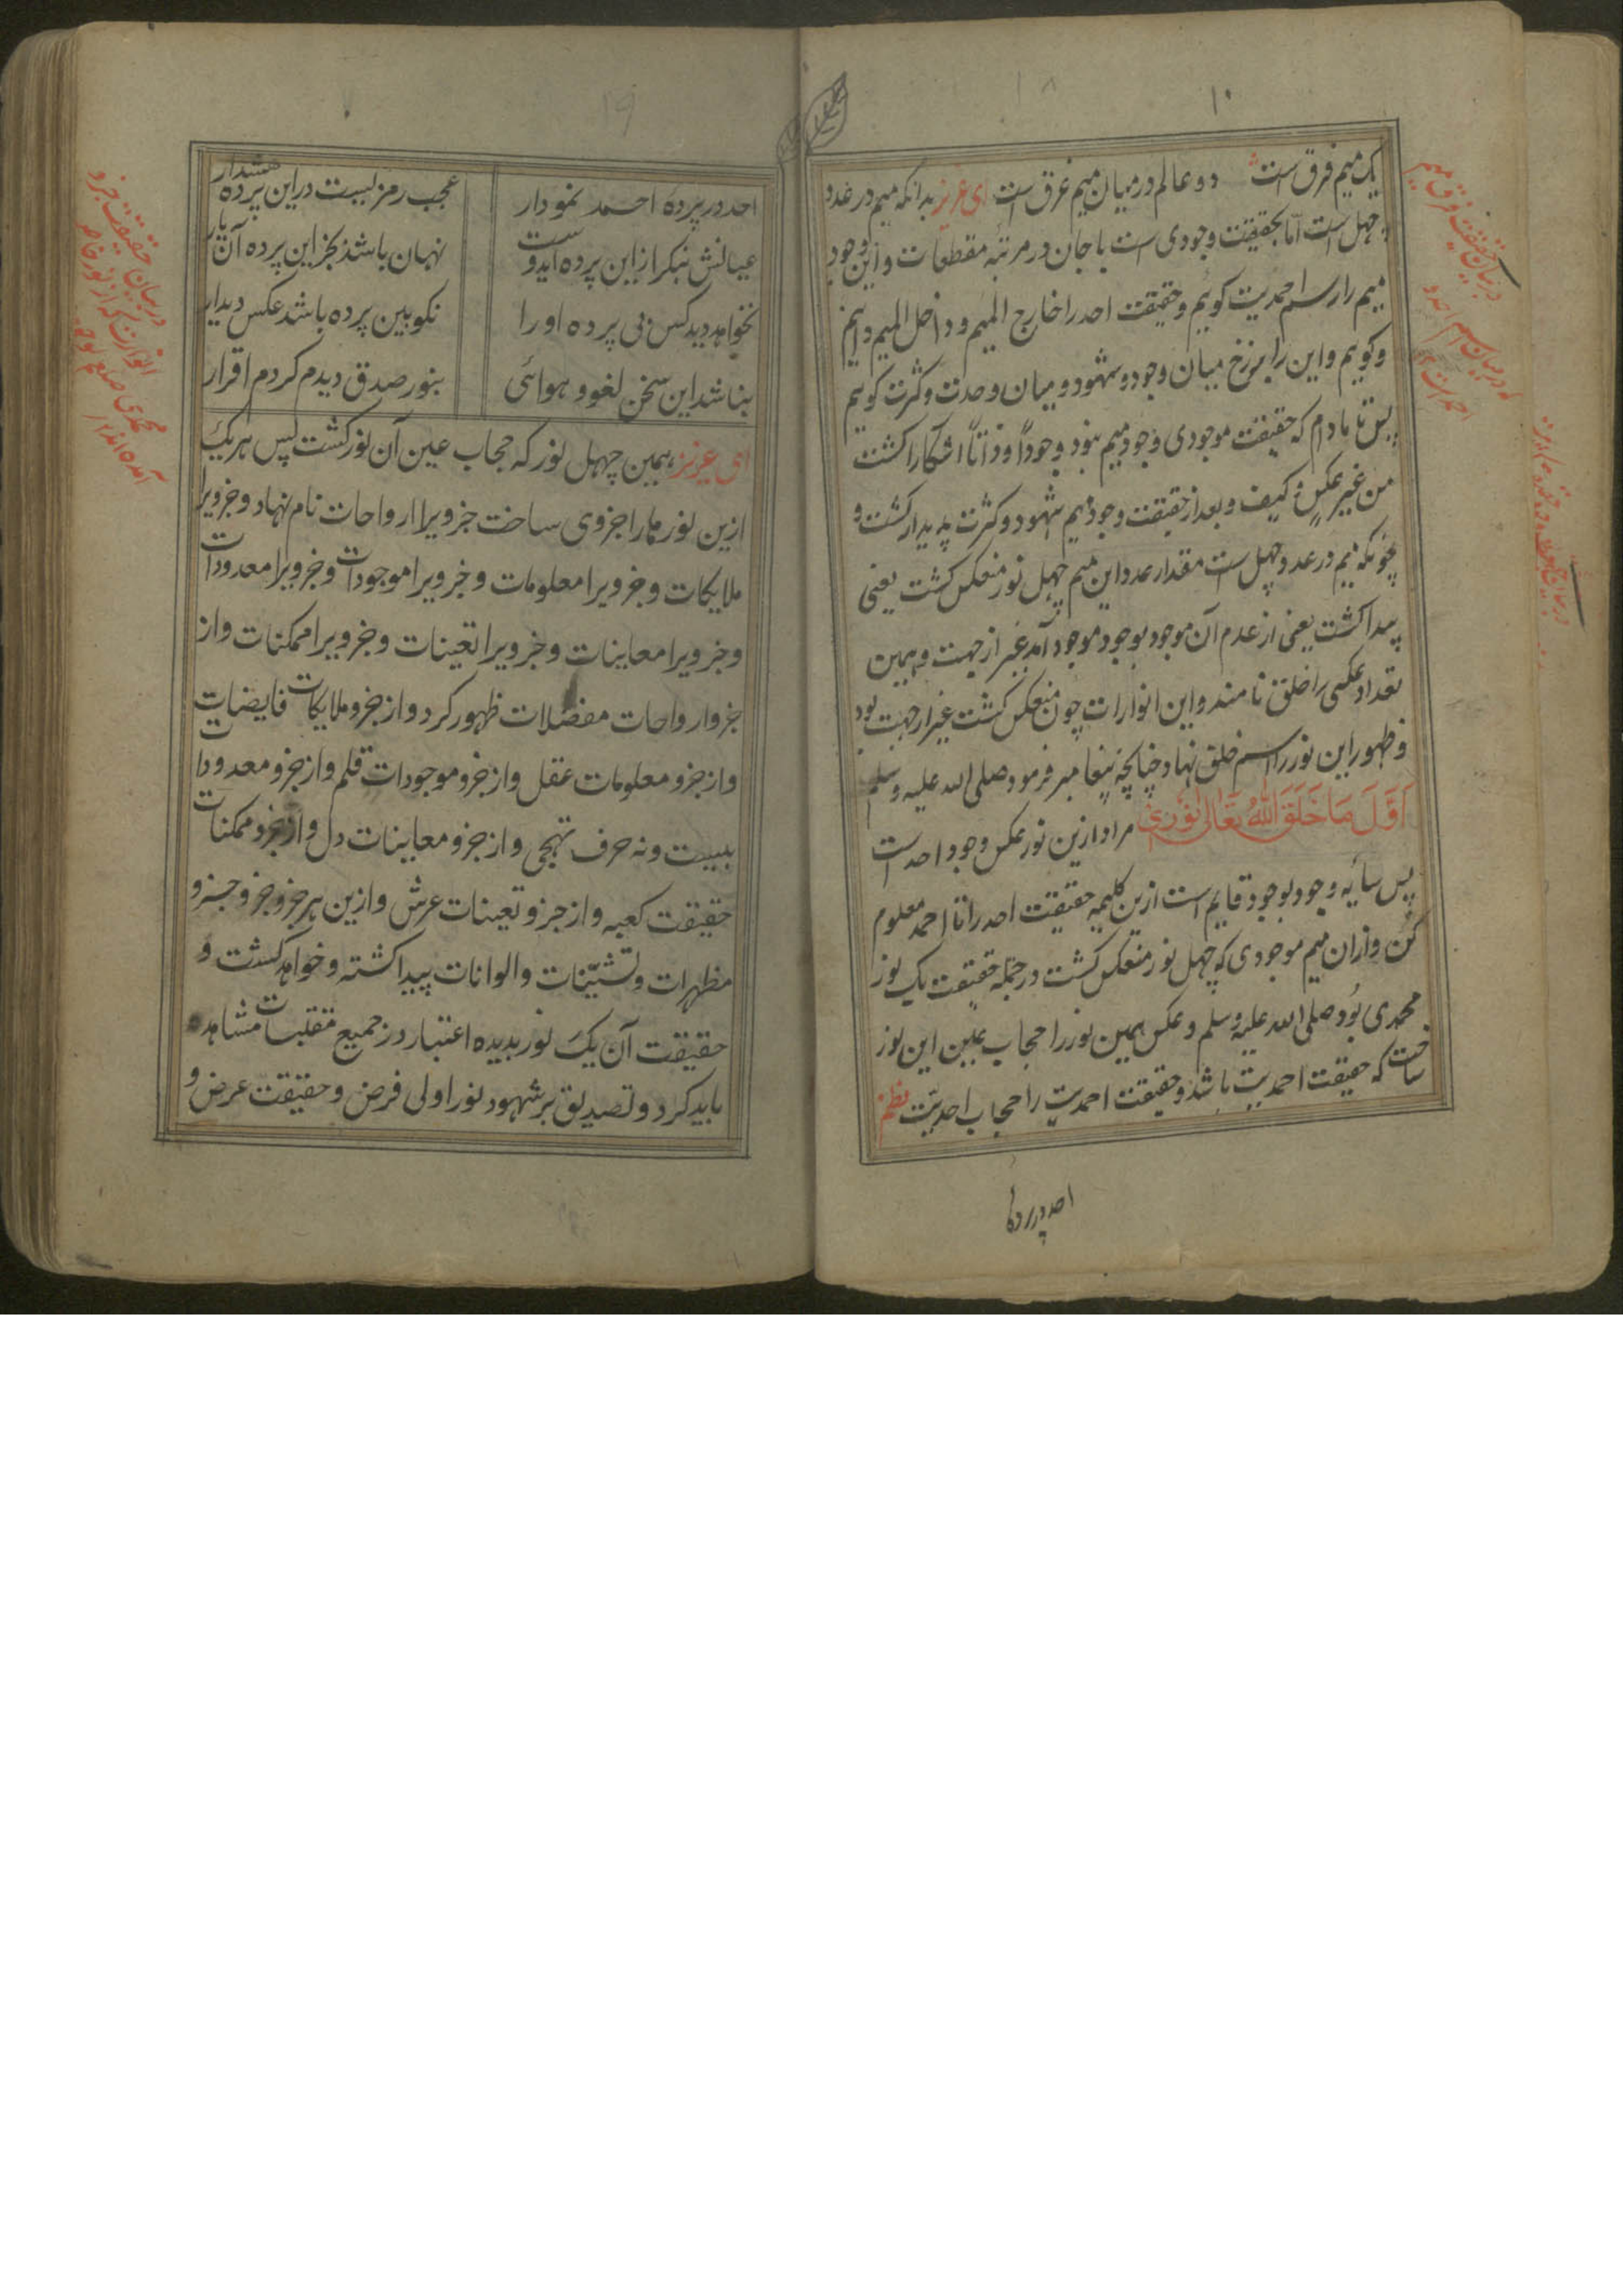 ۱۸
۱۰
یک میم فرق است دو عالم در میان میم غرق است ای عزیز بدانکه میم در عدد
چهل است اما بحقیقت وجودی است با جان در مرتبه مقطعات و این وجود
میم را رسم احمدیت کوئیم و حقیقت احد را خارج المیم و داخل المیم دانیم
و کویم و این را برزخ میان وجود و شهود و میان وحدت و کثرت کویم
پس تا مادام که حقیقت موجودی وجود میم بنود وجوداً و ذاتاً اشکارا کشت
من غیر عکس و کیف و بعد از حقیقت وجود میم شهود و کثرت پدیدار کشت و
چونکه میم در عدد چهل است مقدار عدد این میم چهل نور منعکس کشت یعنی
پیدا کشت یعنی از عدم آن موجود بوجود موجود آمد غیر از جهت و همین
تعداد عکسی را خلق نامند و این انوارات چون منعکس کشت غیر از جهت بود
و ظهور این نور را اسم خلق نهاد چنانچه پیغامبر فرمود صلی الله علیه وسلم
اَوَّلَ مَا خَلَقَ اللهُ تَعَالٰی نُوْرِیْ مراد ازین نور عکس وجود احد است
پس سایه وجود بوجود قایم است ازین کلیمه حقیقت احد را تا احمد معلوم
کن و ازان میم موجودی که چهل نور منعکس کشت در جمله حقیقت یک نور
محمدی بود صلی الله علیه وسلم و عکس همین نور را حجاب عین این نور
ساخت که حقیقت احمدیت باشد و حقیقت احمدیت را حجاب احدیت نظم
احد در پرده
۱۹
احد در پرده احمد نمودار عجب رمز لیست در این پرده هشدار
عیانش بنکر از این پرده ایدوست نهان باشد بجز این پرده آن یار
نخواهد دید کس بی پرده او را نکو بین پرده باشد عکس دیدار
بناشد این سخن لغو و هوائی بنور صدق دیدم کردم اقرار
ای عزیز همین چهل نور که حجاب عین آن نور کشت پس هر یک
ازین نورها را جزوی ساخت جزویرا ارواحات نام نهاد و جزویرا
ملایکات و جزویرا معلومات و جزویرا موجودات و جزویرا معدودات
و جزویرا معاینات و جزویرا تعینات و جزویرا ممکنات و از
جزو ارواحات مفضلات ظهور کرد و از جزو ملایکات فایضات
و از جزو معلومات عقل و از جزو موجودات قلم و از جزو معدودات
بیست و نه حرف تهجی و از جزو معاینات دل و از جزو ممکنات
حقیقت کعبه و از جزو تعینات عرش و ازین هر جزو جزو و جزو
مظهرات و تشیّنات و الوانات پیدا کشته و خواهد کشت و
حقیقت آن یک نور بدیده اعتبار در جمیع مقلبات مشاهده
باید کرد و تصدیق بر شهود نور اولی فرض و حقیقت عرض و
در بیان حقیقت فرق میم
در بیان حقیقت جزو